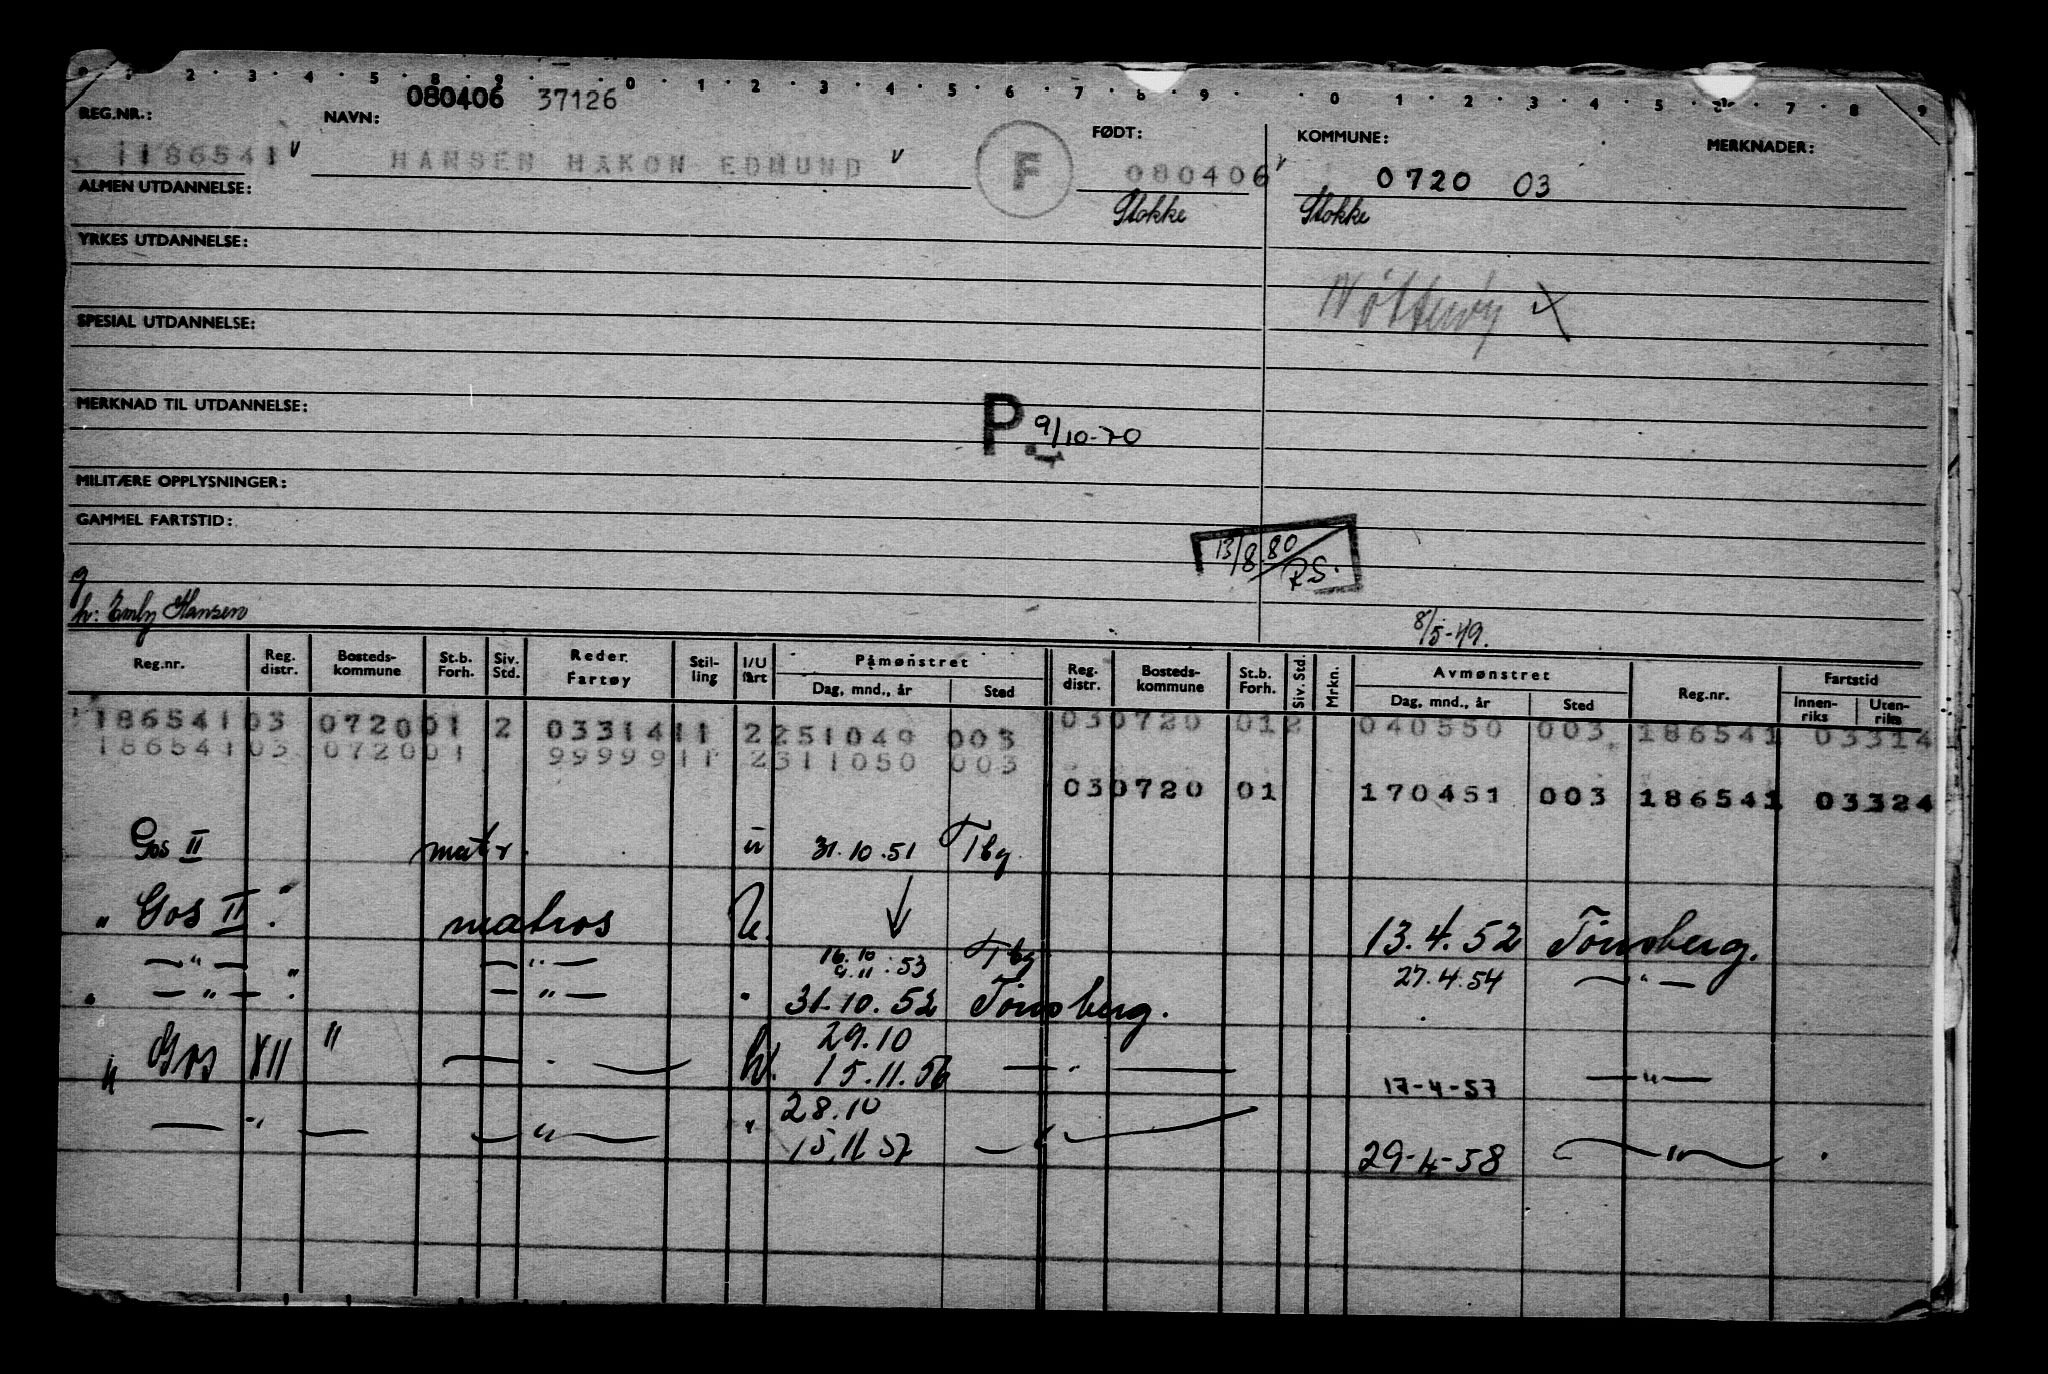 1 2 3 4 5 6 8 9 0 1 2 3 4 5 6 7 8 9 0 1 2 3 4 5 7 8 9
080406 37126
REG.NR.: NAVN: FØDT: KOMMUNE: MERKNADER:
1186541 v HANSEN HAKON EDMUND v F 080406 v 0720 03
ALMEN UTDANNELSE: Stokke Stokke
YRKES UTDANNELSE:
Nøtterøy X
SPESIAL UTDANNELSE:
MERKNAD TIL UTDANNELSE: P. 9/10-70
MILITÆRE OPPLYSNINGER:
GAMMEL FARTSTID:
13/8.80 RS.
g
h: Emly Hansen 8/5-49.
Reg.nr. Reg. distr. Bosteds-kommune St.b. Forh. Siv. Std. Reder Fartøy Stil-ling I/U fart Påmønstret Dag, mnd., år Sted Reg. distr. Bosteds-kommune St.b. Forh. Siv. Std. Mrkn. Avmønstret Dag, mnd., år Sted Reg.nr. Fartstid Innen-riks Uten-riks
1186541 03 0720 01 2 03314 11 2 251049 003 03 0720 01 2 040550 003 186541 03314
186541 03 0720 01 99999 11 2 311050 003
03 0720 01 170451 003 186541 03324
Gos II matr. u 31.10.51 Tbg
" Gos II. " matros U. ↓ 13.4.52 Tönsberg.
—"— " —"— 16.10 9.11.53 Tbg 27.4.54 —"—
" —"— " —"— " 31.10.52 Tönsberg.
" Gos XII " —"— U. 29.10 15.11.56 —"— 17-4-57 —"—
—"— —"— " 28.10 15.11.57 —"— 29-4-58 —"— .